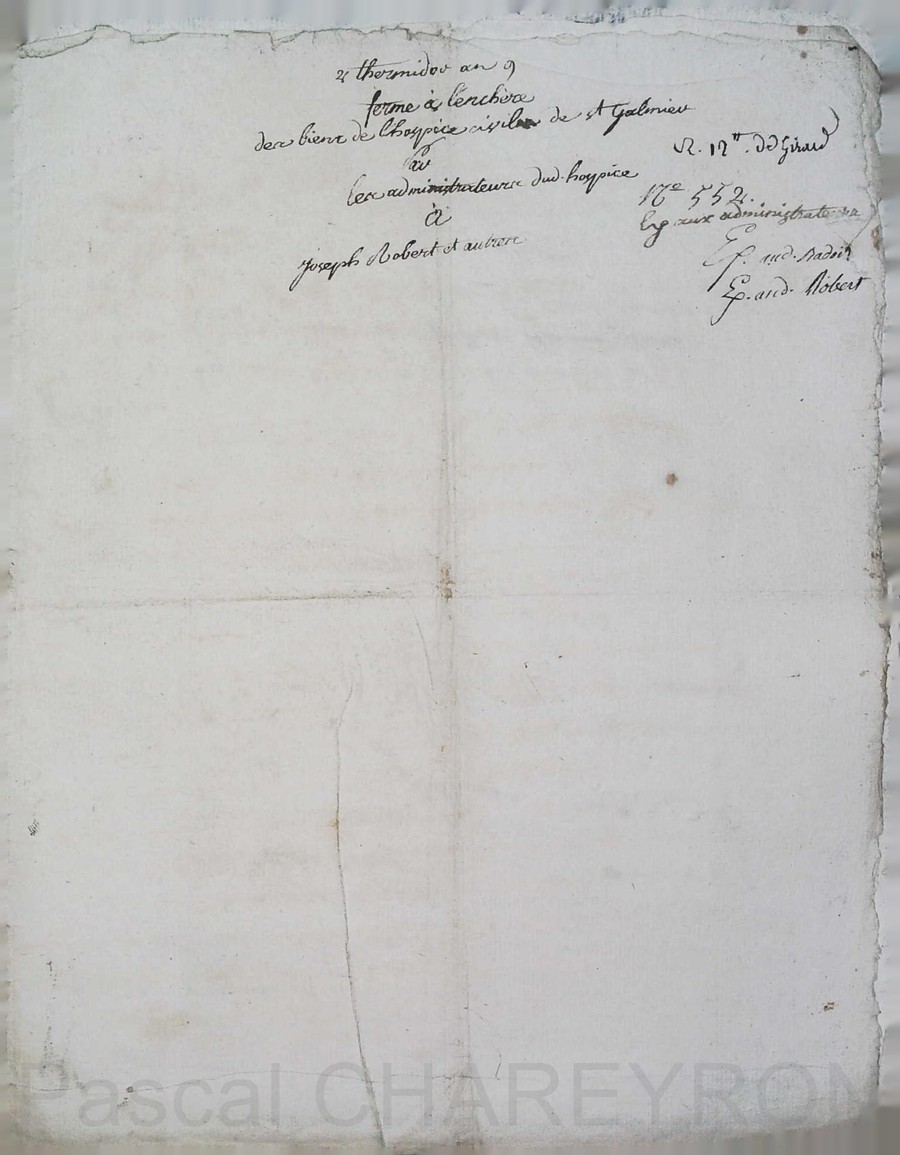 2 thermidor an 9
ferme à lenchère
des biens de lhospice civile de st Galmier
par
les administrateurs dud. hospice
à
joseph Robert et autres
R. 12tt. dd Girard
17e 552.
Exp aux administrateurs
Exp. aud. Nadin
Exp. aud. Robert
Pascal CHAREYRON